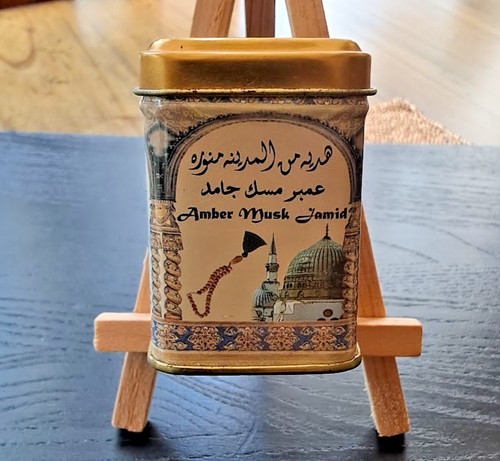 هدية من المدينة منوره
عمبر مسك جامد
Amber Musk Jamid